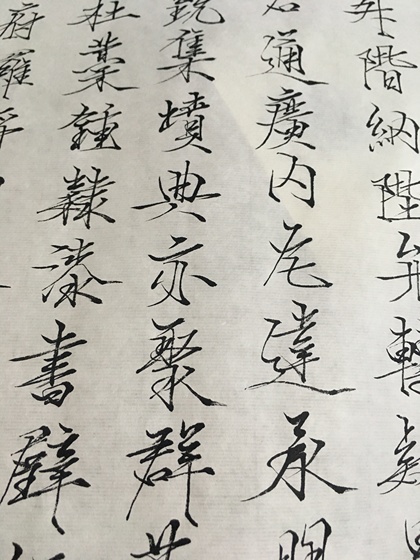 升階納陛弁轉疑
右通廣内左達承明
既集墳典亦聚群英
杜藁鍾隸漆書壁
府羅